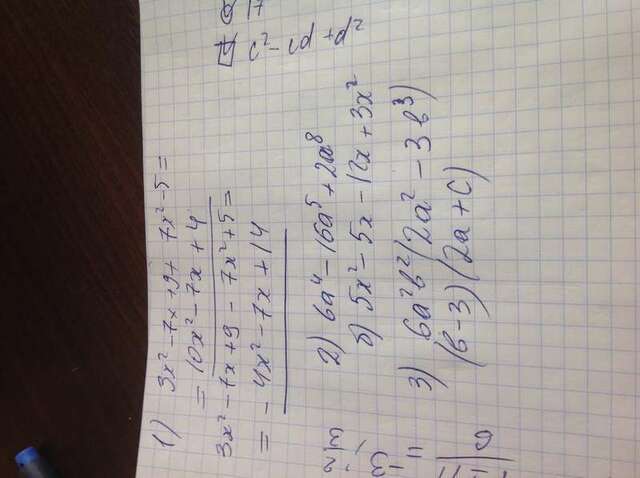 c² - cd + d²
1) 3x² - 7x + 9 + 7x² - 5 =
= 10x² - 7x + 4
3x² - 7x + 9 - 7x² + 5 =
= - 4x² - 7x + 14
2) 6a⁴ - 16a⁵ + 2a⁸
б) 5x² - 5x - 12x + 3x²
3) 6a²b²(2a² - 3b³)
(b - 3)(2a + c)